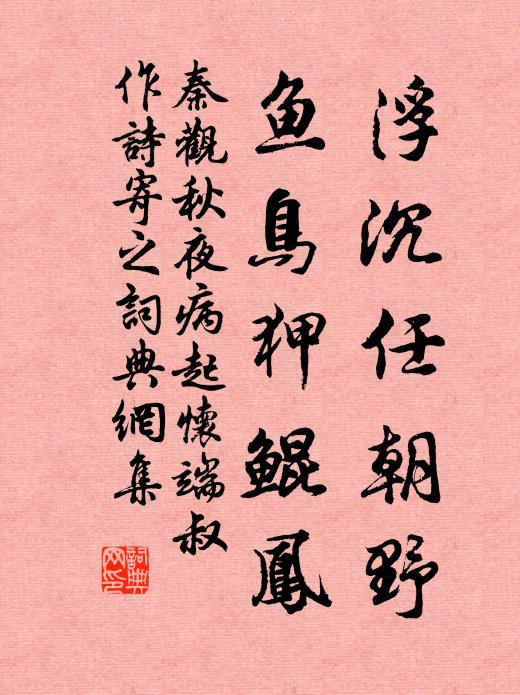 浮沉任朝野
鱼鳥狎鲲鳳
秦觀秋夜病起懷端叔
作詩寄之詞典網集
詞典網印